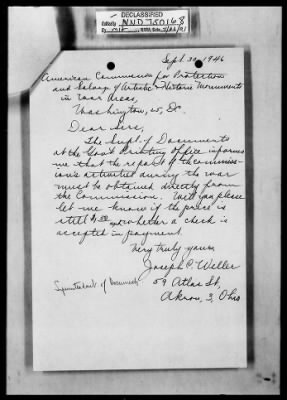 DECLASSIFIED
Authority NND 750168
Sept. 30, 1946
American Commission for Protection
and Salvage of Artistic & Historic Monuments
in War Areas,
Washington, 25, DC.
Dear Sirs,
The Supt. of Documents
at the Gov't Printing Office informs
me that the report of the commiss-
ion's activities during the war
must be obtained directly from
the Commission. Will you please
let me know if the price is
still $1.00 and whether a check is
accepted in payment.
Very truly yours,
Joseph C. Weller
59 Atlas St,
Akron, 3, Ohio
Superintendent of Documents